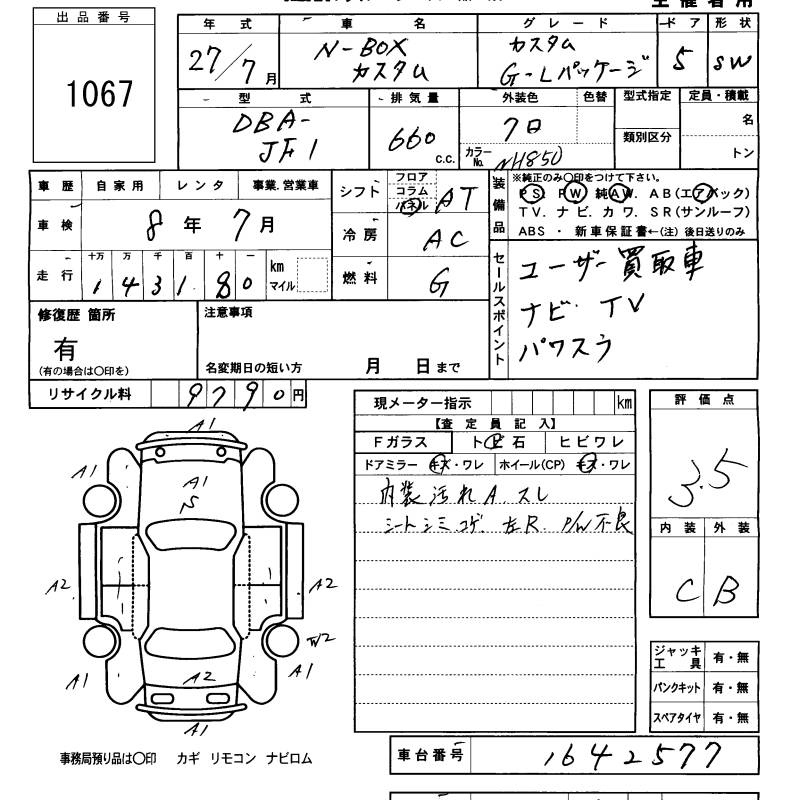 出品番号
1067
年式 車名 グレード ドア 形状
27/7月 N-BOX カスタム カスタム G-Lパッケージ 5 SW
型式 排気量 外装色 色替 型式指定 定員・積載
DBA-JF1 660 c.c. クロ カラーNo. NH850 類別区分 名 トン
車歴 自家用 レンタ 事業.営業車
車検 8年 7月
走行 十万 万 千 百 十 一 km マイル
1 4 3 1 8 0
シフト フロア コラム パネル AT
冷房 AC
燃料 G
装備品 ※純正のみ〇印をつけて下さい。
PS. PW 純AW. AB(エアバック)
TV. ナビ. カワ. SR(サンルーフ)
ABS ・ 新車保証書←(注) 後日送りのみ
セールスポイント
ユーザー買取車
ナビ. TV
パワスラ
修復歴 箇所
有
(有の場合は〇印を)
注意事項
名変期日の短い方 月 日まで
リサイクル料 9790円
現メーター指示 km
【査定員記入】
Fガラス ト ビ 石 ヒビワレ
ドアミラー キズ・ワレ ホイール(CP) キズ・ワレ
内装汚れA.スレ
シートシミコゲ. 左R. P/W不良
評価点
3.5
内装 外装
C B
ジャッキ工具 有・無
パンクキット 有・無
スペアタイヤ 有・無
A1
A1 A1 A1
S
A2 A2
W2
A1 A2 A1
A1
事務局預り品は〇印 カギ リモコン ナビロム
車台番号 1642577